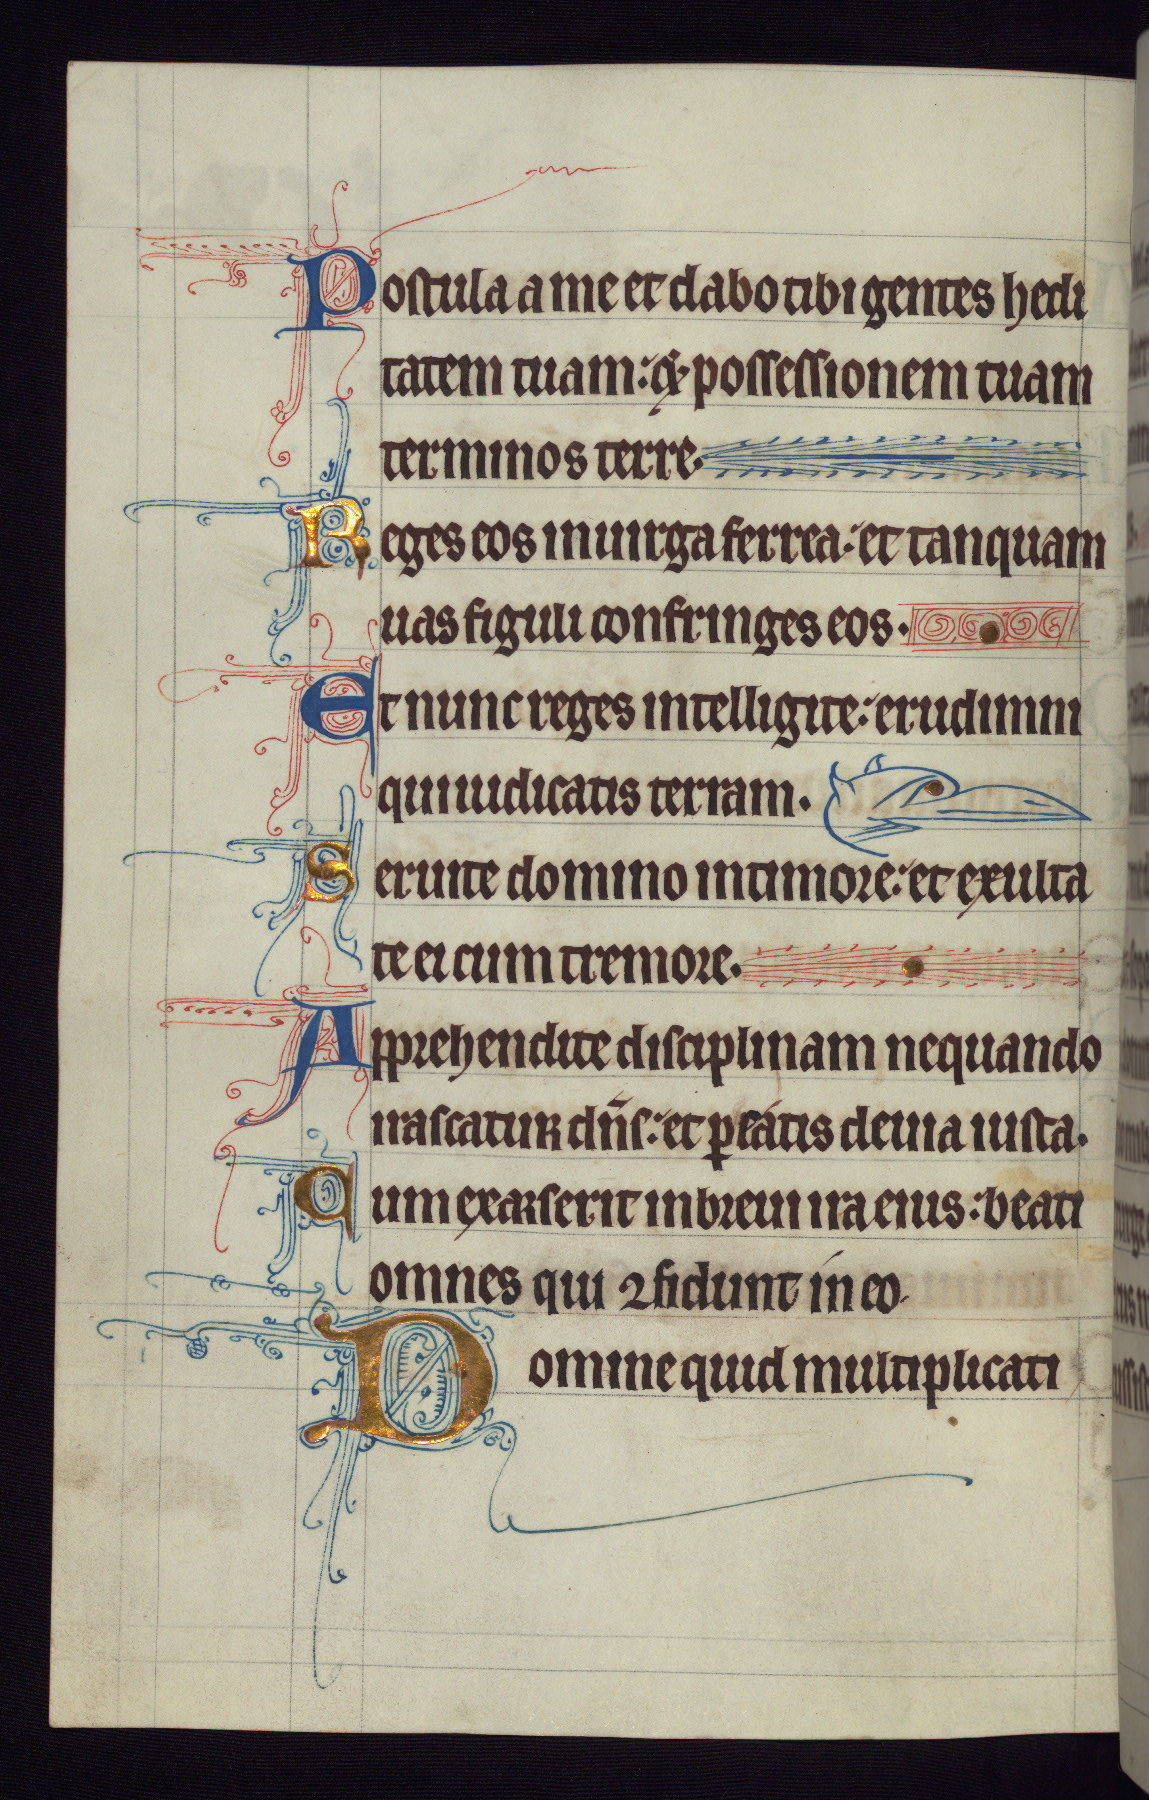 Postula a me et dabo tibi gentes hedi
tatem tuam: & possessionem tuam
terminos terre.
Reges eos in uirga ferrea: et tanquam
uas figuli confringes eos.
Et nunc reges intelligite: erudimini
qui iudicatis terram.
Seruite domino in timore: et exulta
te ei cum tremore.
Apprehendite disciplinam nequando
irascatur dns: et peatis de uia iusta.
Qum exarserit in breui ira eius: beati
omnes qui ꝯfidunt in eo.
Domine quid multiplicati